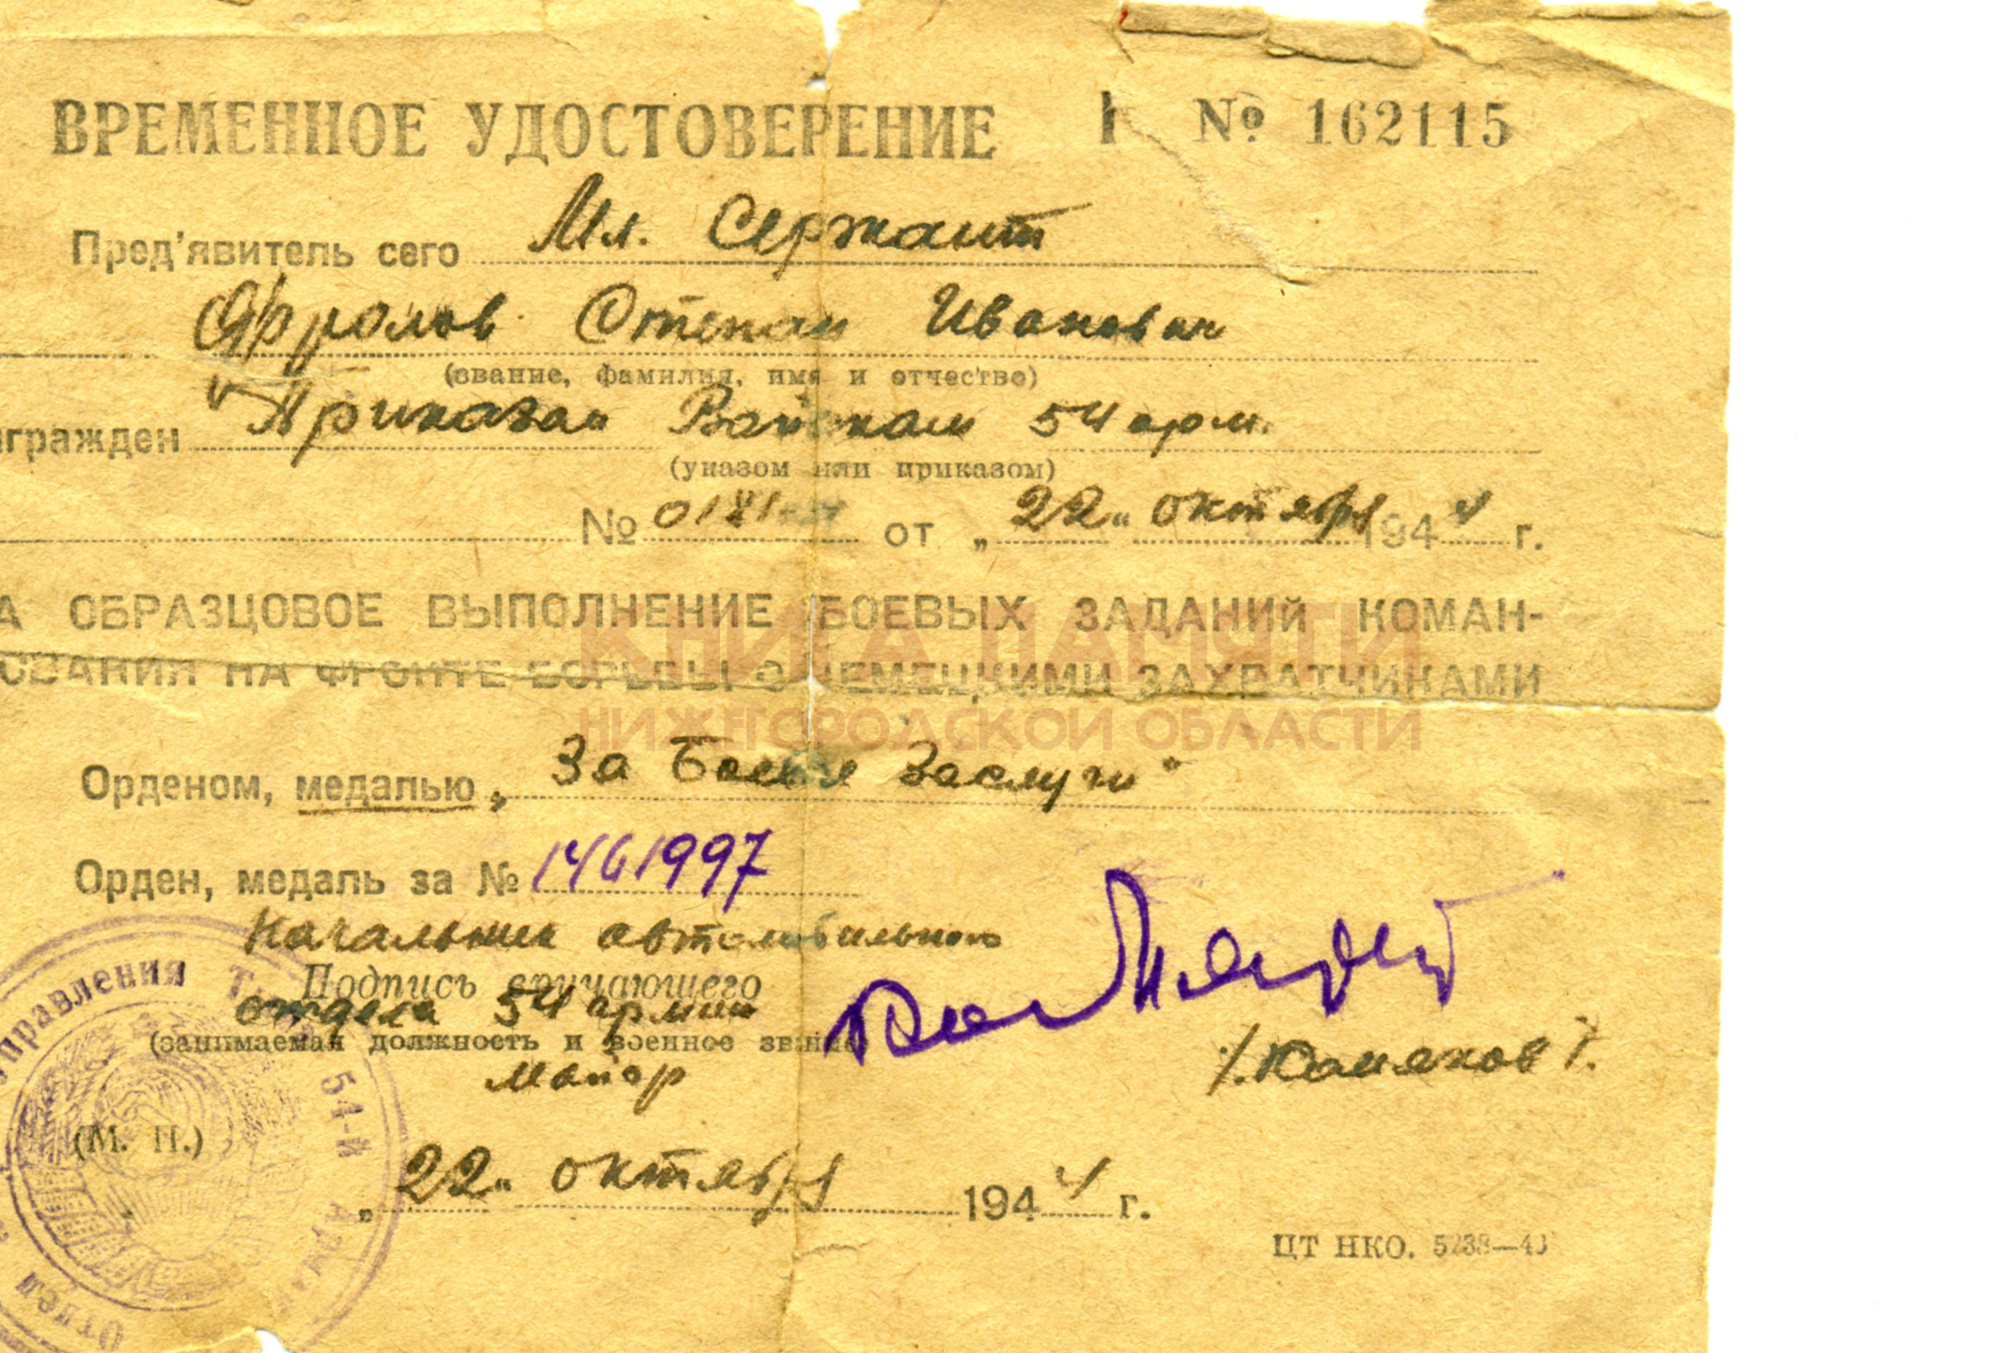 ВРЕМЕННОЕ УДОСТОВЕРЕНИЕ № 162115
Пред'явитель сего Мл. Сержант
Степан Иванович
(звание, фамилия, имя и отчество)
граждён Приказом Войскам 54 арм.
(указом или приказом)
№ от „22" октября 1944 г.
А ОБРАЗЦОВОЕ ВЫПОЛНЕНИЕ БОЕВЫХ ЗАДАНИЙ КОМАН-
ОВАНИЯ НА ФРОНТЕ БОРЬБЫ С НЕМЕЦКИМИ ЗАХВАТЧИКАМИ
КНИГА ПАМЯТИ
НИЖЕГОРОДСКОЙ ОБЛАСТИ
Орденом, медалью „За Боевые Заслуги"
Орден, медаль за № 1461997
Начальник автомобильного
Подпись вручающего
отдела 54 армии
(занимаемая должность и военное звание)
Майор
(М. П.)
„22" октября 1944 г.
ЦТ НКО.
правления
54-й Арм
Отдел